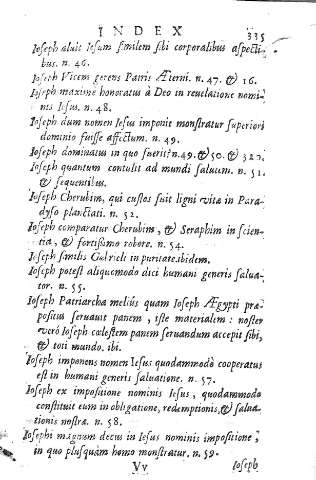 INDEX 335
Ioseph aluit Iesum similem sibi corporalibus aspecti-
bus. n. 46.
Ioseph Vicem gerens Patris Æterni. n. 47. & 16.
Ioseph maximè honoratus à Deo in reuelatione nomi-
nis Iesus. n. 48.
Ioseph dum nomen Iesus imponit monstratur superiori
dominio fuisse affectum. n. 49.
Ioseph dominatus in quo fuerit? n. 49. & 50. & 320.
Ioseph quantum contulit ad mundi salutem. n. 51.
& sequentibus.
Ioseph Cherubim, qui custos fuit ligni vitæ in Para-
dyso plantati. n. 52.
Ioseph comparatur Cherubim, & Seraphim in scien-
tia, & fortissimo robore. n. 54.
Ioseph similis Gabrieli in puritate. ibidem.
Ioseph potest aliquomodo dici humani generis salua-
tor. n. 55.
Ioseph Patriarcha meliùs quam Ioseph Ægypti præ-
positus seruauit panem, iste materialem: noster
verò Ioseph cœlestem panem seruandum accepit sibi,
& toti mundo. ibi.
Ioseph imponens nomen Iesus quodammodò cooperatus
est in humani generis saluatione. n. 57.
Ioseph ex impositione nominis Iesus, quodammodo
constituit eum in obligatione, redemptionis, & salua-
tionis nostræ. n. 58.
Iosephi magnum decus in Iesus nominis impositione,
in quo plusquam homo monstratur. n. 59.
Vv Ioseph